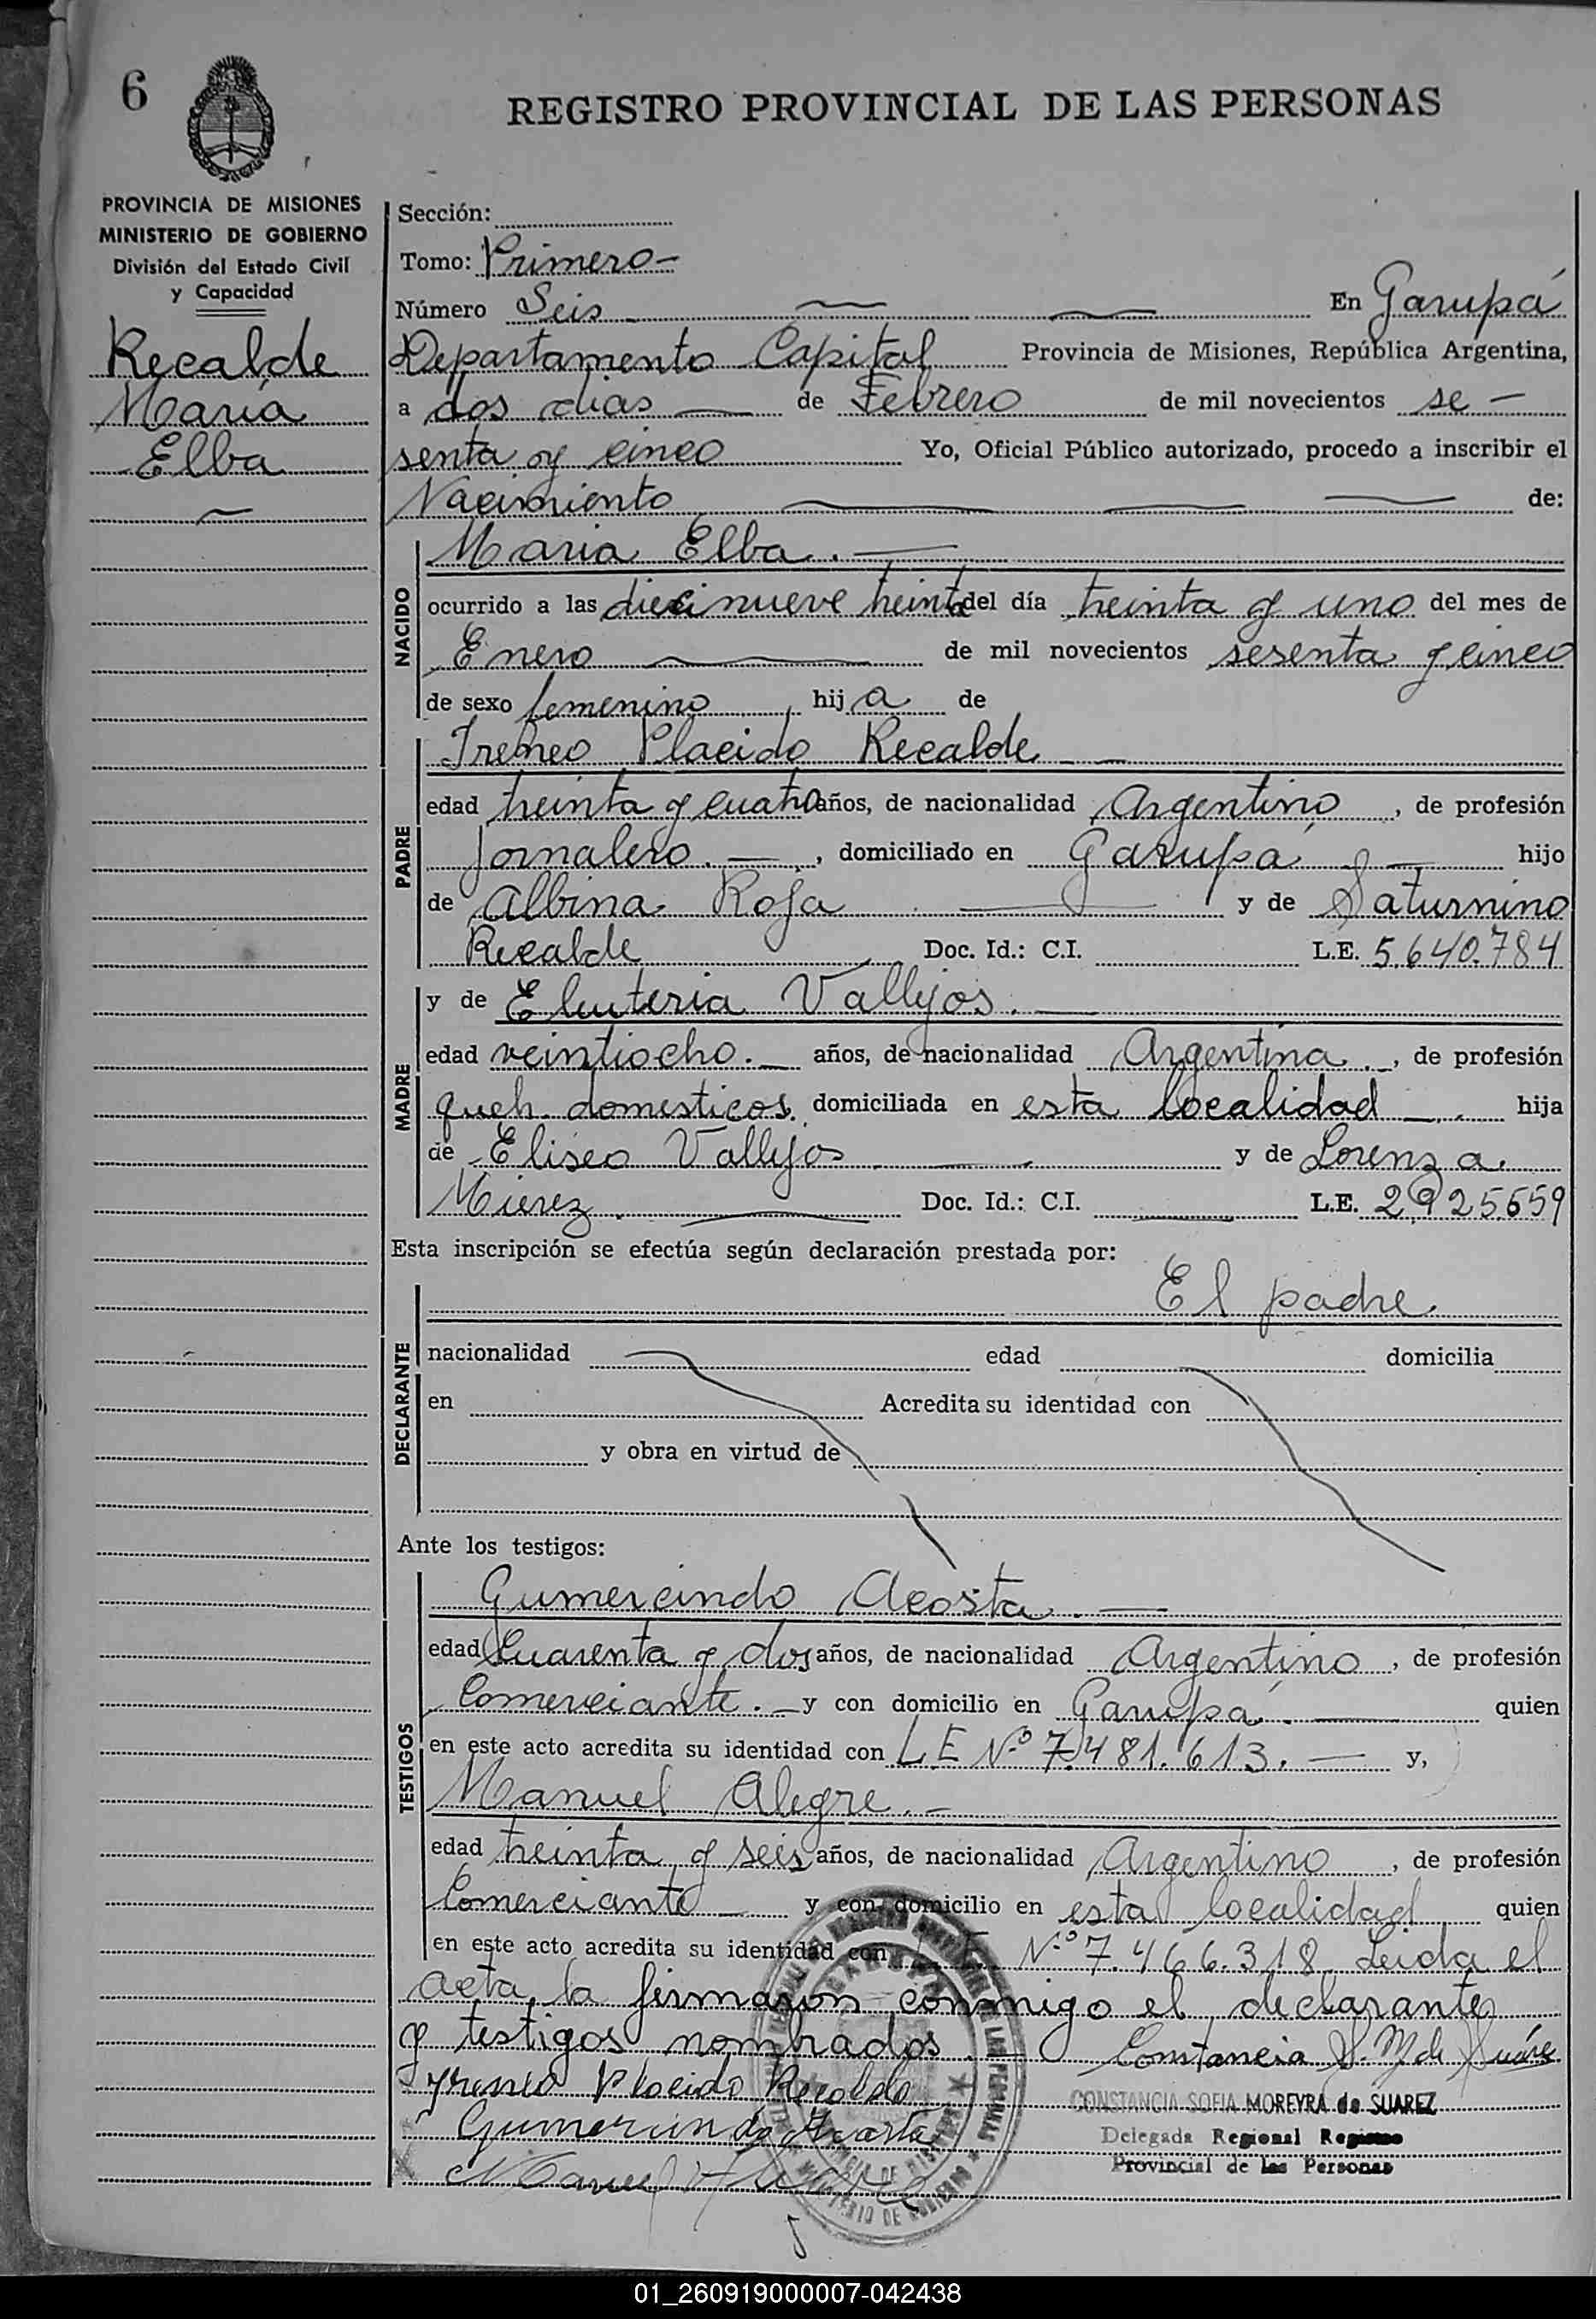 6
REGISTRO PROVINCIAL DE LAS PERSONAS
PROVINCIA DE MISIONES
MINISTERIO DE GOBIERNO
División del Estado Civil
y Capacidad
Recalde
Maria
Elba
Sección:
Tomo: Primero
Número Seis En Garupá
Departamento Capital Provincia de Misiones, República Argentina,
a dos dias de Febrero de mil novecientos se-
senta y cinco Yo, Oficial Público autorizado, procedo a inscribir el
Nacimiento de:
NACIDO
Maria Elba.
ocurrido a las diecinueve treinta del día treinta y uno del mes de
Enero de mil novecientos sesenta y cinco
de sexo femenino, hija de
PADRE
Ireneo Placido Recalde
edad treinta y cuatro años, de nacionalidad Argentino, de profesión
Jornalero., domiciliado en Garupá hijo
de Albina Roja y de Saturnino
Recalde Doc. Id.: C.I. L.E. 5.640.784
MADRE
y de Eleuteria Vallejos.
edad veintiocho. años, de nacionalidad Argentina., de profesión
queh. domesticos, domiciliada en esta localidad hija
de Eliseo Vallejos y de Lorenza
Mierez. Doc. Id.: C.I. L.E. 2925659
Esta inscripción se efectúa según declaración prestada por:
El padre.
DECLARANTE
nacionalidad edad domicilia
en Acredita su identidad con
y obra en virtud de
Ante los testigos:
TESTIGOS
Gumercindo Acosta.
edad Cuarenta y dos años, de nacionalidad Argentino, de profesión
Comerciante. y con domicilio en Garupá. quien
en este acto acredita su identidad con L E Nº 7.481.613. y,
Manuel Alegre.
edad treinta y seis años, de nacionalidad Argentino, de profesión
Comerciante y con domicilio en esta localidad quien
en este acto acredita su identidad con Nº 7.466.318. Leida el
acta, la firmaron conmigo el declarante
y testigos nombrados.
Constancia S. M de Suárez
Yreneo Placido Recalde
CONSTANCIA SOFIA MOREYRA de SUAREZ
Gumercindo Acosta
Delegada Regional Registro
Provincial de las Personas
Manuel
01_260919000007-042438